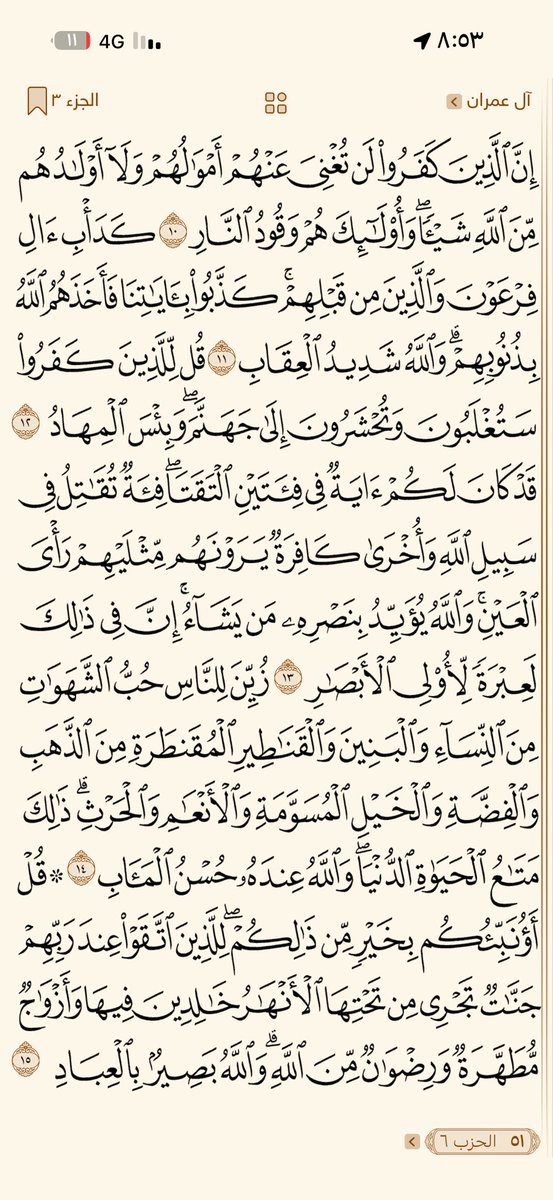 ٨:٥٣ 4G ١١
آل عمران الجزء ٣
إِنَّ ٱلَّذِينَ كَفَرُواْ لَن تُغْنِىَ عَنْهُمْ أَمْوَٰلُهُمْ وَلَآ أَوْلَٰدُهُم
مِّنَ ٱللَّهِ شَيْـًٔاۖ وَأُوْلَٰٓئِكَ هُمْ وَقُودُ ٱلنَّارِ ١٠ كَدَأْبِ ءَالِ
فِرْعَوْنَ وَٱلَّذِينَ مِن قَبْلِهِمْۚ كَذَّبُواْ بِـَٔايَٰتِنَا فَأَخَذَهُمُ ٱللَّهُ
بِذُنُوبِهِمْۗ وَٱللَّهُ شَدِيدُ ٱلْعِقَابِ ١١ قُل لِّلَّذِينَ كَفَرُواْ
سَتُغْلَبُونَ وَتُحْشَرُونَ إِلَىٰ جَهَنَّمَۖ وَبِئْسَ ٱلْمِهَادُ ١٢
قَدْ كَانَ لَكُمْ ءَايَةٌ فِى فِئَتَيْنِ ٱلْتَقَتَاۖ فِئَةٌ تُقَٰتِلُ فِى
سَبِيلِ ٱللَّهِ وَأُخْرَىٰ كَافِرَةٌ يَرَوْنَهُم مِّثْلَيْهِمْ رَأْىَ
ٱلْعَيْنِۚ وَٱللَّهُ يُؤَيِّدُ بِنَصْرِهِۦ مَن يَشَآءُۚ إِنَّ فِى ذَٰلِكَ
لَعِبْرَةً لِّأُوْلِى ٱلْأَبْصَٰرِ ١٣ زُيِّنَ لِلنَّاسِ حُبُّ ٱلشَّهَوَٰتِ
مِنَ ٱلنِّسَآءِ وَٱلْبَنِينَ وَٱلْقَنَٰطِيرِ ٱلْمُقَنطَرَةِ مِنَ ٱلذَّهَبِ
وَٱلْفِضَّةِ وَٱلْخَيْلِ ٱلْمُسَوَّمَةِ وَٱلْأَنْعَٰمِ وَٱلْحَرْثِۗ ذَٰلِكَ
مَتَٰعُ ٱلْحَيَوٰةِ ٱلدُّنْيَاۖ وَٱللَّهُ عِندَهُۥ حُسْنُ ٱلْمَـَٔابِ ١٤ ۞ قُلْ
أَؤُنَبِّئُكُم بِخَيْرٍ مِّن ذَٰلِكُمْۖ لِلَّذِينَ ٱتَّقَوْاْ عِندَ رَبِّهِمْ
جَنَّٰتٌ تَجْرِى مِن تَحْتِهَا ٱلْأَنْهَٰرُ خَٰلِدِينَ فِيهَا وَأَزْوَٰجٌ
مُّطَهَّرَةٌ وَرِضْوَٰنٌ مِّنَ ٱللَّهِۗ وَٱللَّهُ بَصِيرٌۢ بِٱلْعِبَادِ ١٥
٥١ الحزب ٦